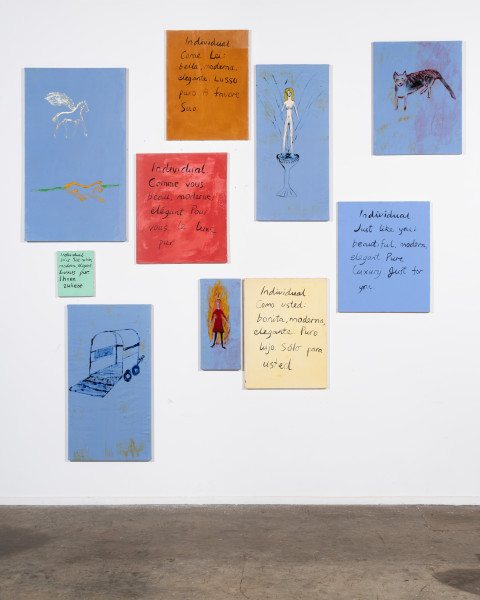 Individual
Come Lei:
bella, moderna,
elegante. Lusso
puro. A favore
Suo.
Individual
Comme vous
beau, moderne,
élégant. Pour
vous, luxe
pur
Individual
modern, elegant
Luxus pur
Ihnen
zuliebe
Individual
Como usted:
bonita, moderna,
elegante. Puro
lujo. Sólo para
usted
Individual
Just like you:
beautiful, modern
elegant. Pure
Luxury. Just for
you